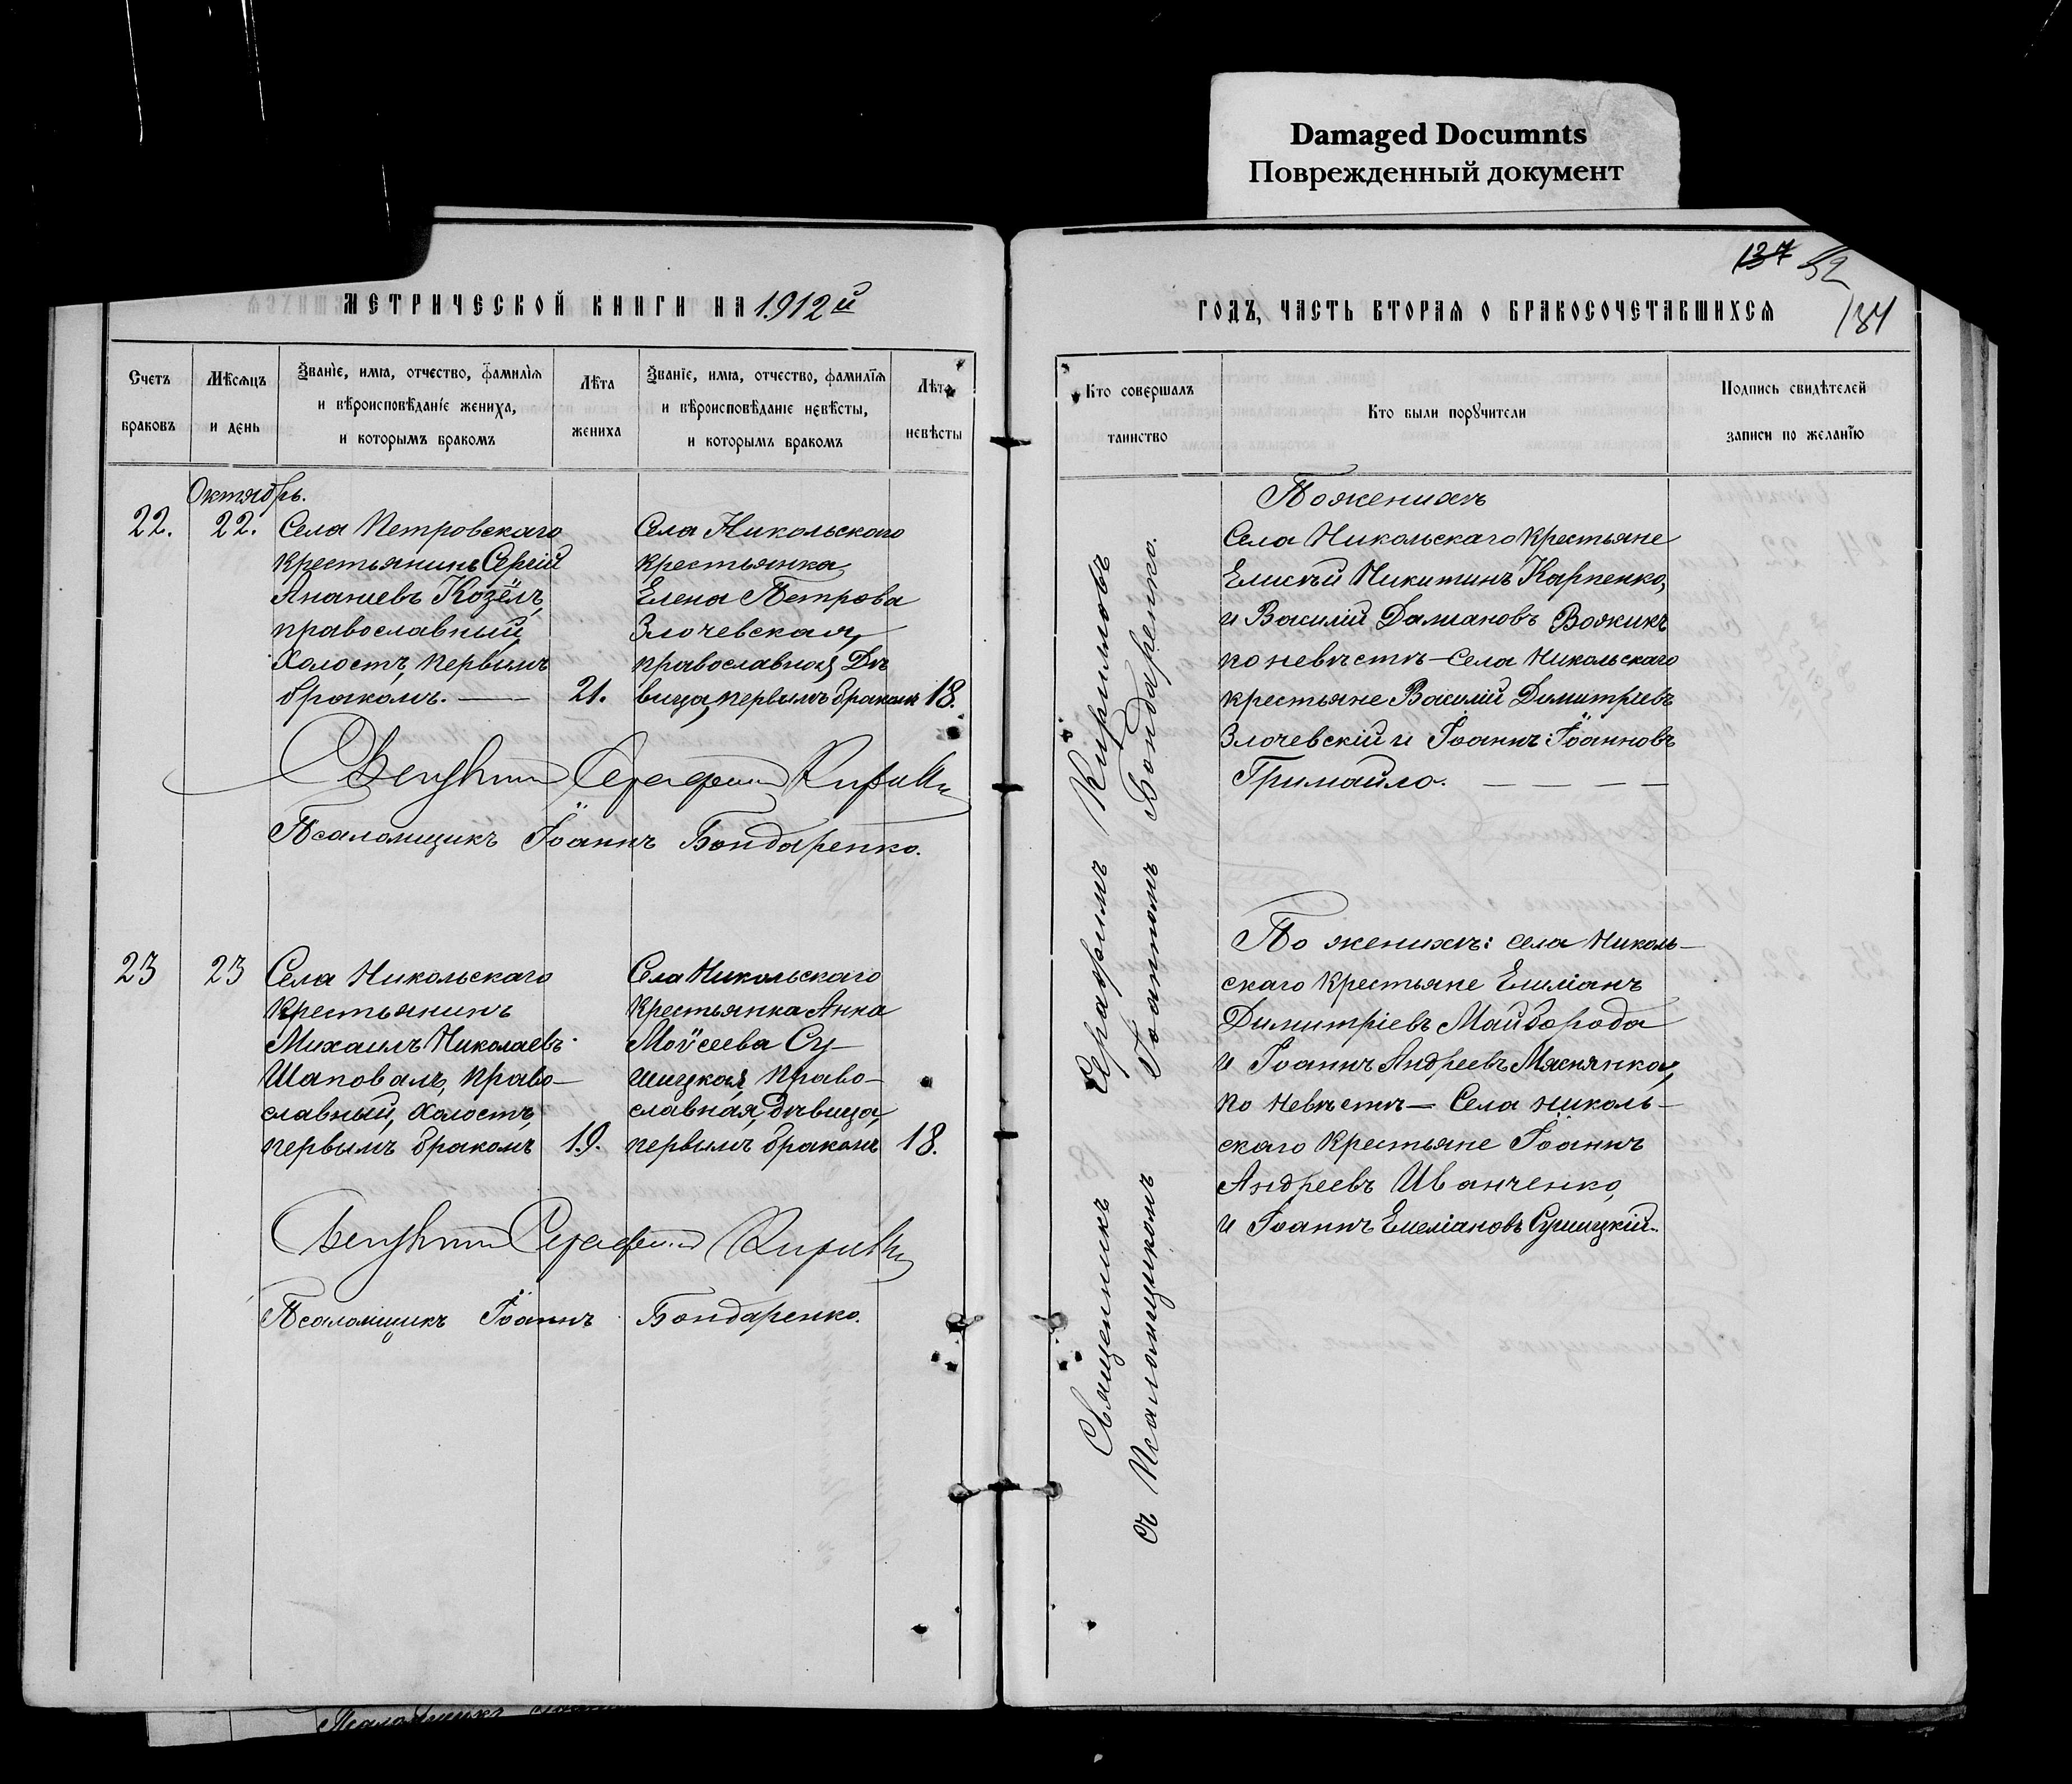 Damaged Documnts
Поврежденный документ
137 52
134
МЕТРИЧЕСКОЙ КНИГИ НА 1912й
ГОДЪ, ЧАСТЬ ВТОРАЯ О БРАКОСОЧЕТАВШИХСЯ
Счетъ
браковъ
Мѣсяцъ
и день
Званіе, имя, отчество, фамилія
и вѣроисповѣданіе жениха,
и которымъ бракомъ
Лѣта
жениха
Званіе, имя, отчество, фамилія
и вѣроисповѣданіе невѣсты,
и которымъ бракомъ
Лѣта
невѣсты
Кто совершалъ
таинство
Кто были поручители
Подпись свидѣтелей
записи по желанію
Октябрь.
22.
22.
Села Петровскаго
крестьянинъ Сергій
Ананіевъ Козёлъ,
православный,
холостъ, первымъ
бракомъ. —
21.
Села Никольскаго
крестьянка
Елена Петрова
Злочевская,
православная, Дѣ
вица, первымъ бракомъ
18.
Священникъ Серафимъ Кириловъ
Псаломщикъ Іоаннъ Бондаренко.
По женихѣ
Села Никольскаго крестьяне
Елисѣй Никитинъ Карпенко,
и Василій Даміановъ Вожикъ
по невѣстѣ — Села Никольскаго
крестьяне Василій Димитріевъ
Злочевскій и Іоаннъ Іоанновъ
Гримайло. — — — —
23
23
Села Никольскаго
крестьянинъ
Михаилъ Николаевъ
Шаповалъ, право-
славный, холостъ,
первымъ бракомъ
19.
Села Никольскаго
крестьянка Анна
Моѵсеева Су-
шицкая, право-
славная, дѣвица,
первымъ бракомъ
18.
Священникъ Серафимъ Кириловъ
Псаломщикъ Іоаннъ Бондаренко.
Священникъ Серафимъ Кириловъ
съ Псаломщикомъ Іоанномъ Бондаренко.
По женихѣ: села Николь-
скаго крестьяне Емиліанъ
Димитріевъ Майборода
и Іоаннъ Андреевъ Мяснянкоа,
по невѣстѣ — Села Николь-
скаго крестьяне Іоаннъ
Андреевъ Иванченко,
и Іоаннъ Емеліановъ Сушицкій.